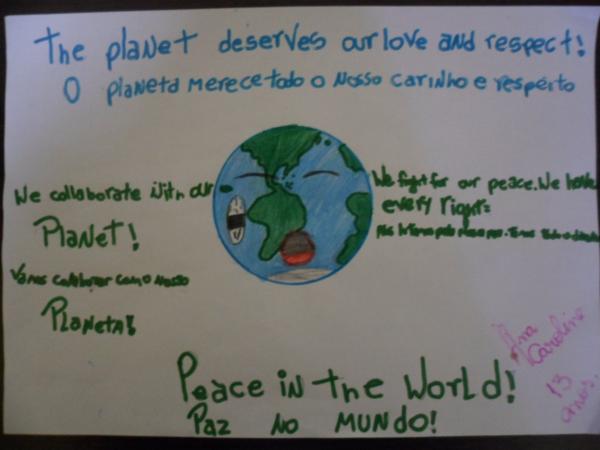 The planet deserves our love and respect!
O planeta merece todo o nosso carinho e respeito
We collaborate with our
Planet!
Vamos colaborar com o nosso
Planeta!
We fight for our peace. We have
every right:
Peace in the World!
Paz no mundo!
Ana
Caroline
13
anos.